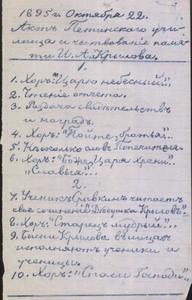 1895 г. Октября 22.
Актъ Летинского учи-
лища и чествование памя-
ти И. А. Крылова.
1.
1. Хоръ: "Царю небесный"...
2. Чтение отчета.
3. Раздача свидѣтельствъ
и наградъ.
4. Хоръ: "Пойте, братья"...
5. Нѣсколько словъ Попечителя
6. Хоръ: "Боже, Царя храни"
"Славься"...
2.
7. Ученикъ читаетъ
свое сочинение "Дѣдушка Крыловъ".
8. Хоръ: Старецъ мудрый...
9. Басни Крылова въ лицахъ
исполняютъ ученики и
ученицы.
10. Хоръ: "Спаси Господи"...